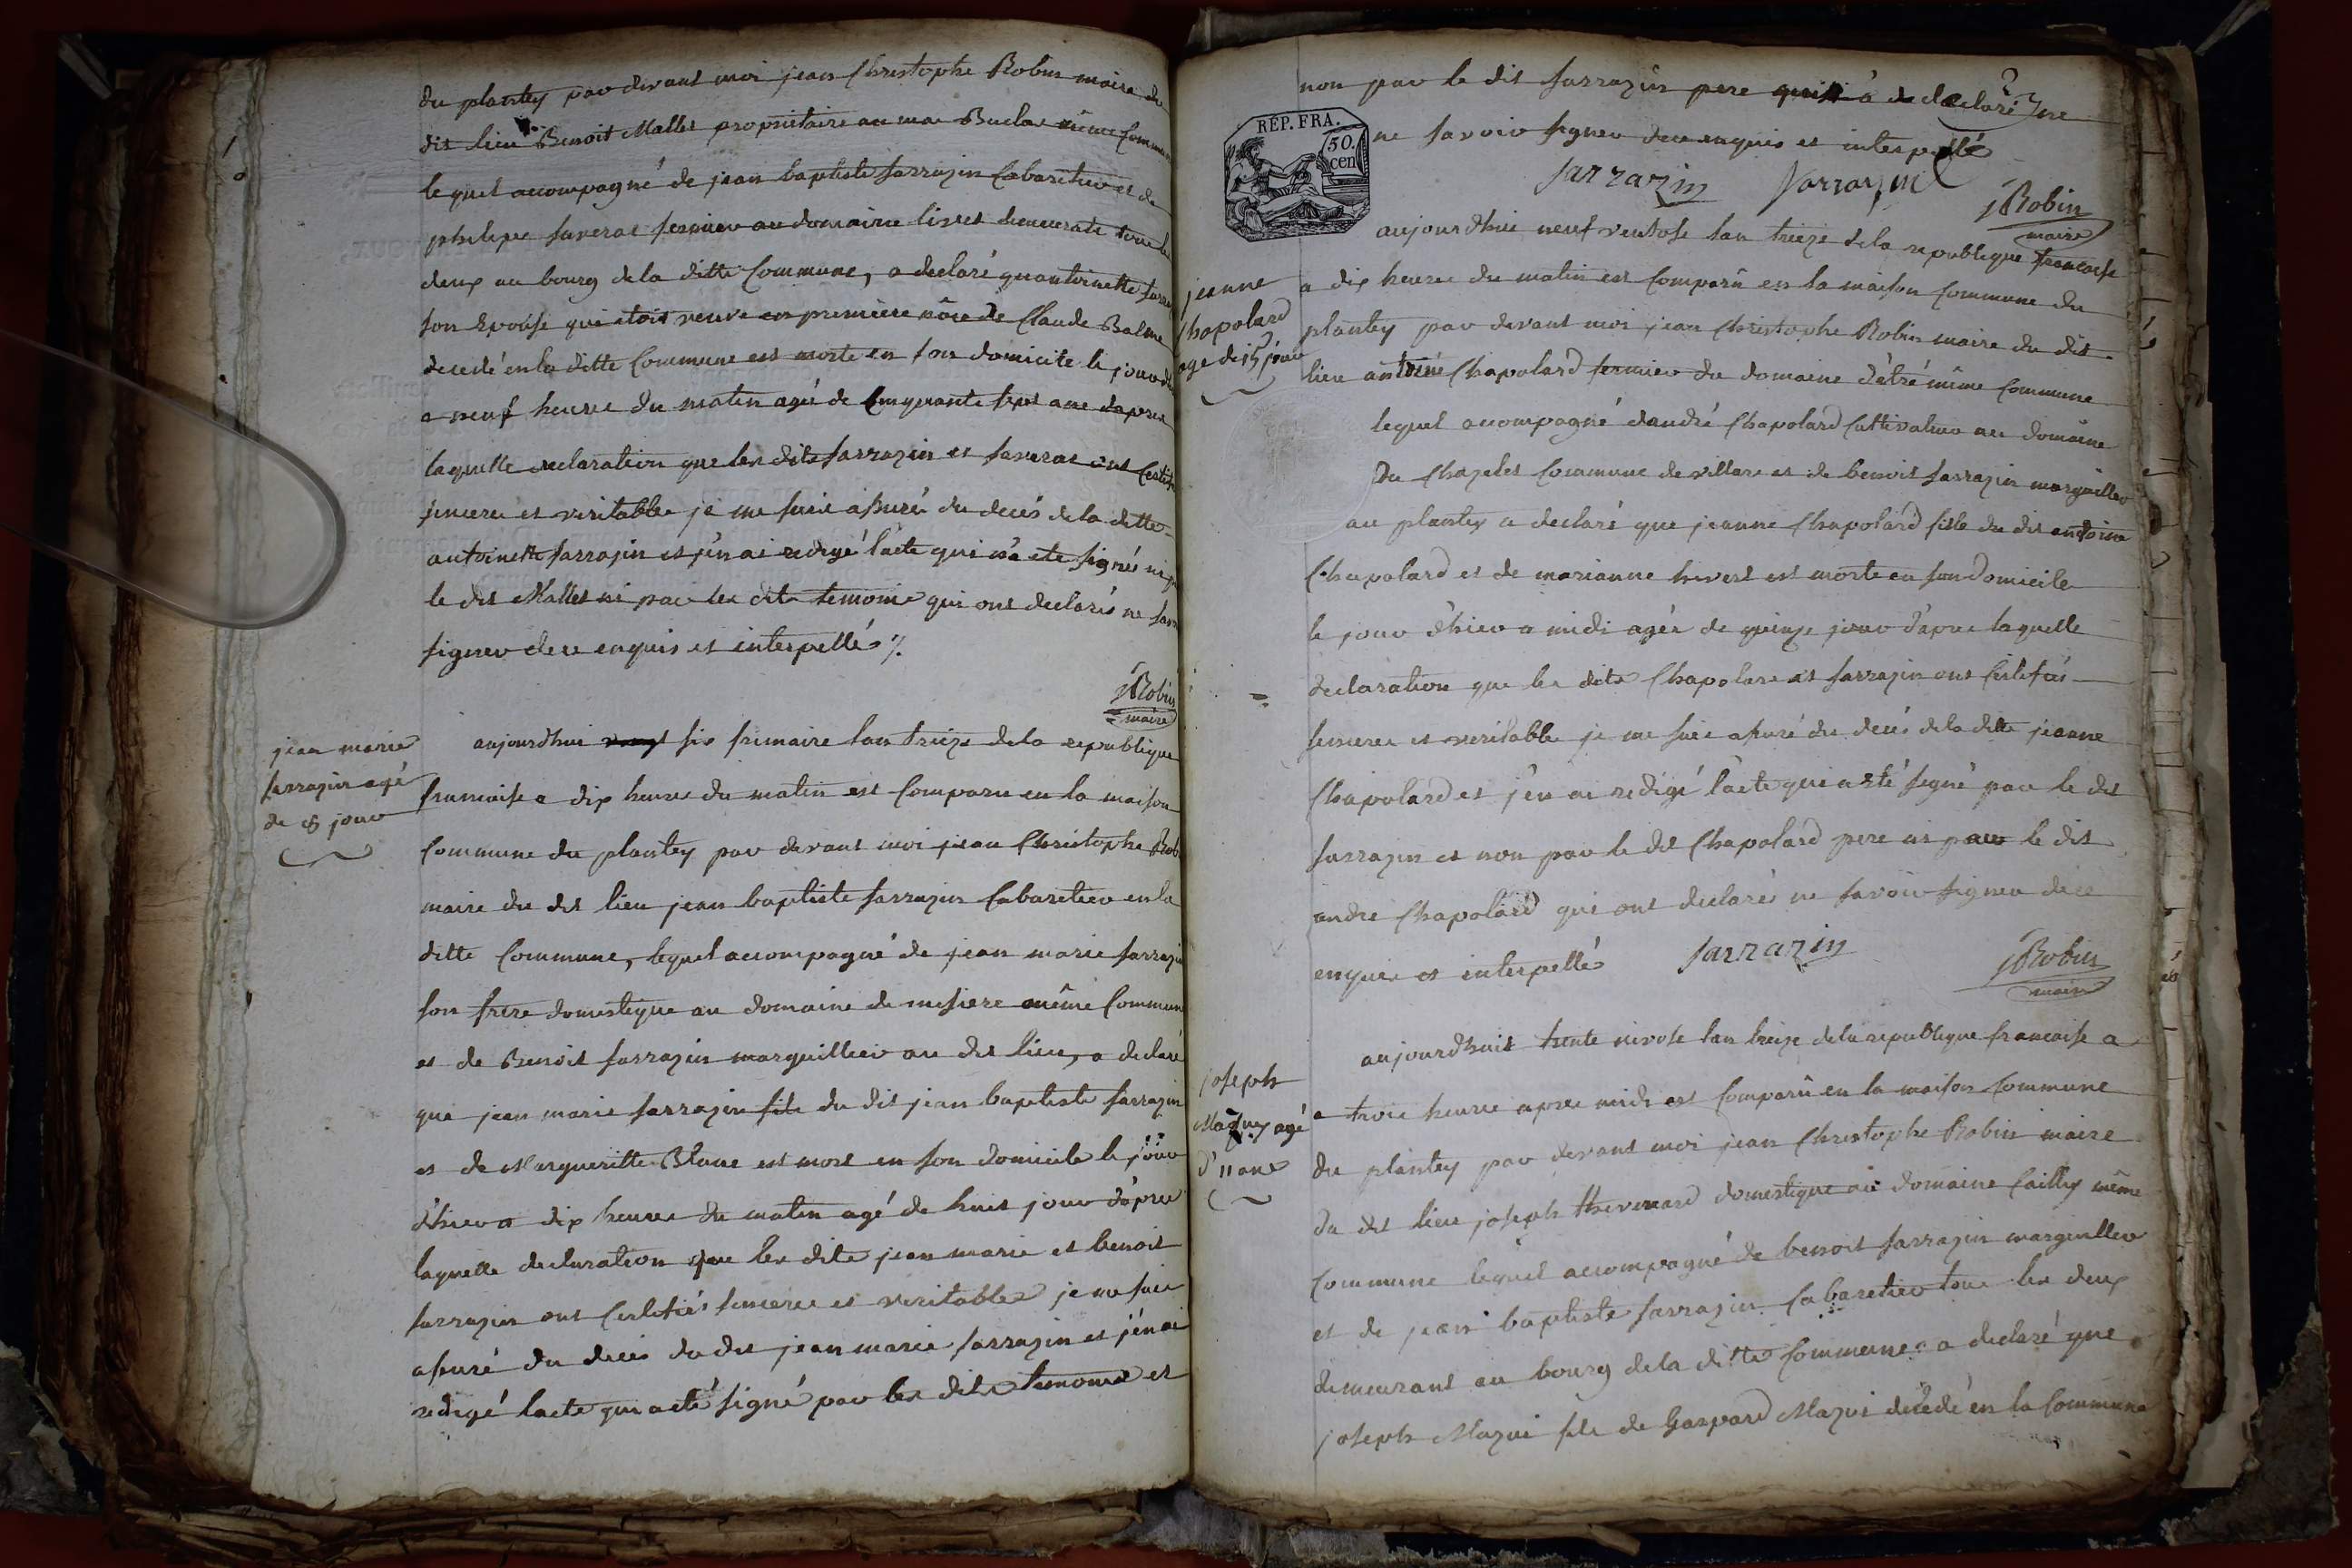 du plantey par devant moi jean Christophe Robin maire du
dit lieu Benoit Mallet propriétaire au mas Buclas même Commune
lequel accompagné de jean baptiste Sarrazin Cabaretier et de
philipe Saveras fermier au domaine demeurants tous les
deux au bourg de la ditte Commune, a declaré quantoinette Sarra
son Epouse qui etoit veuve en première nôce de Claude Balme
decedé en la ditte Commune est morte en son domicile le jour
a neuf heures du matin agée de Cinquante sept ans d'apres
laquelle declaration que les dits Sarrazin et Saveras ont Certif
sincere et veritable je me suis assuré du decès de la ditte
antoinette Sarrazin et j'en ai redigé l'acte qui n'a eté signé ni p
le dit Mallet ni par les dits temoins qui ont declarés ne sav
signer de ce enquis et interpellés ./.
jRobin
maire
jean marie
sarrazin agé
de 8 jours
aujourdhui six frimaire lan treize de la republique
francaise a dix heures du matin est Comparu en la maison
Commune du plantey par devant moi jean Christophe Rob
maire du dit lieu jean baptiste Sarrazin Cabaretier en la
ditte Commune, lequel accompagné de jean marie Sarrazi
son frere domestique au domaine de mesiere même Commun
et de Benoit Sarrazin marguillier au dit lieu, a declaré
que jean marie Sarrazin fils du dit jean baptiste Sarrazin
et de Margueritte Blanc est mort en son domicile le jour
d'hier a dix heures du matin agé de huit jours d'apres
laquelle declaration que les dits jean marie et benoit
Sarrazin ont Certifiés sinceres et veritables je me suis
assuré du deces du dit jean marie Sarrazin et j'en ai
redigé l'acte qui a eté signé par les dits temoins et
non par le dit Sarrazin pere qui a declaré ne
ne savoir signer de ce enquis et interpellé
RÉP. FRA.
50.
cen
Sarrazin Sarrazin
jRobin
maire
jeanne
Chapolard
age de 15 jours
aujourdhui neuf ventose lan treize de la republique francaise
a dix heures du matin est Comparû en la maison Commune du
plantey par devant moi jean Christophe Robin maire du dit
lieu antoine Chapolard fermier du domaine détré même Commune
lequel accompagné dandré Chapolard Cultivateur au domaine
du Chazelet Commune de villars et de benoit Sarrazin marguillier
au plantey a declaré que jeanne Chapolard fille du dit antoine
Chapolard et de marianne hivert est morte en son domicile
le jour d'hier a midi agée de quinze jours d'apres laquelle
declaration que les dits Chapolard et Sarrazin ont Certifiés
sinceres et veritable je me suis assuré du decès de la ditte jeanne
Chapolard et j'en ai redigé l'acte qui a eté signé par le dit
Sarrazin et non par le dit Chapolard pere ni par le dit
andre Chapolard qui ont declarés ne savoir signer de ce
enquis et interpellés
Sarrazin
jRobin
maire
joseph
Mazuy agé
d'11 ans
aujourdhuit trente nivose lan treize de la republique francaise a
a trois heures apres midi est Comparû en la maison Commune
du plantey par devant moi jean Christophe Robin maire
du dit lieu joseph thevenard domestique au domaine Cailly même
Commune lequel accompagné de benoit Sarrazin marguillier
et de jean baptiste Sarrazin Cabaretier tous les deux
demeurant au bourg de la ditte Commune a declaré que
joseph Mazui fils de Gaspard Mazui decedé en la Commune